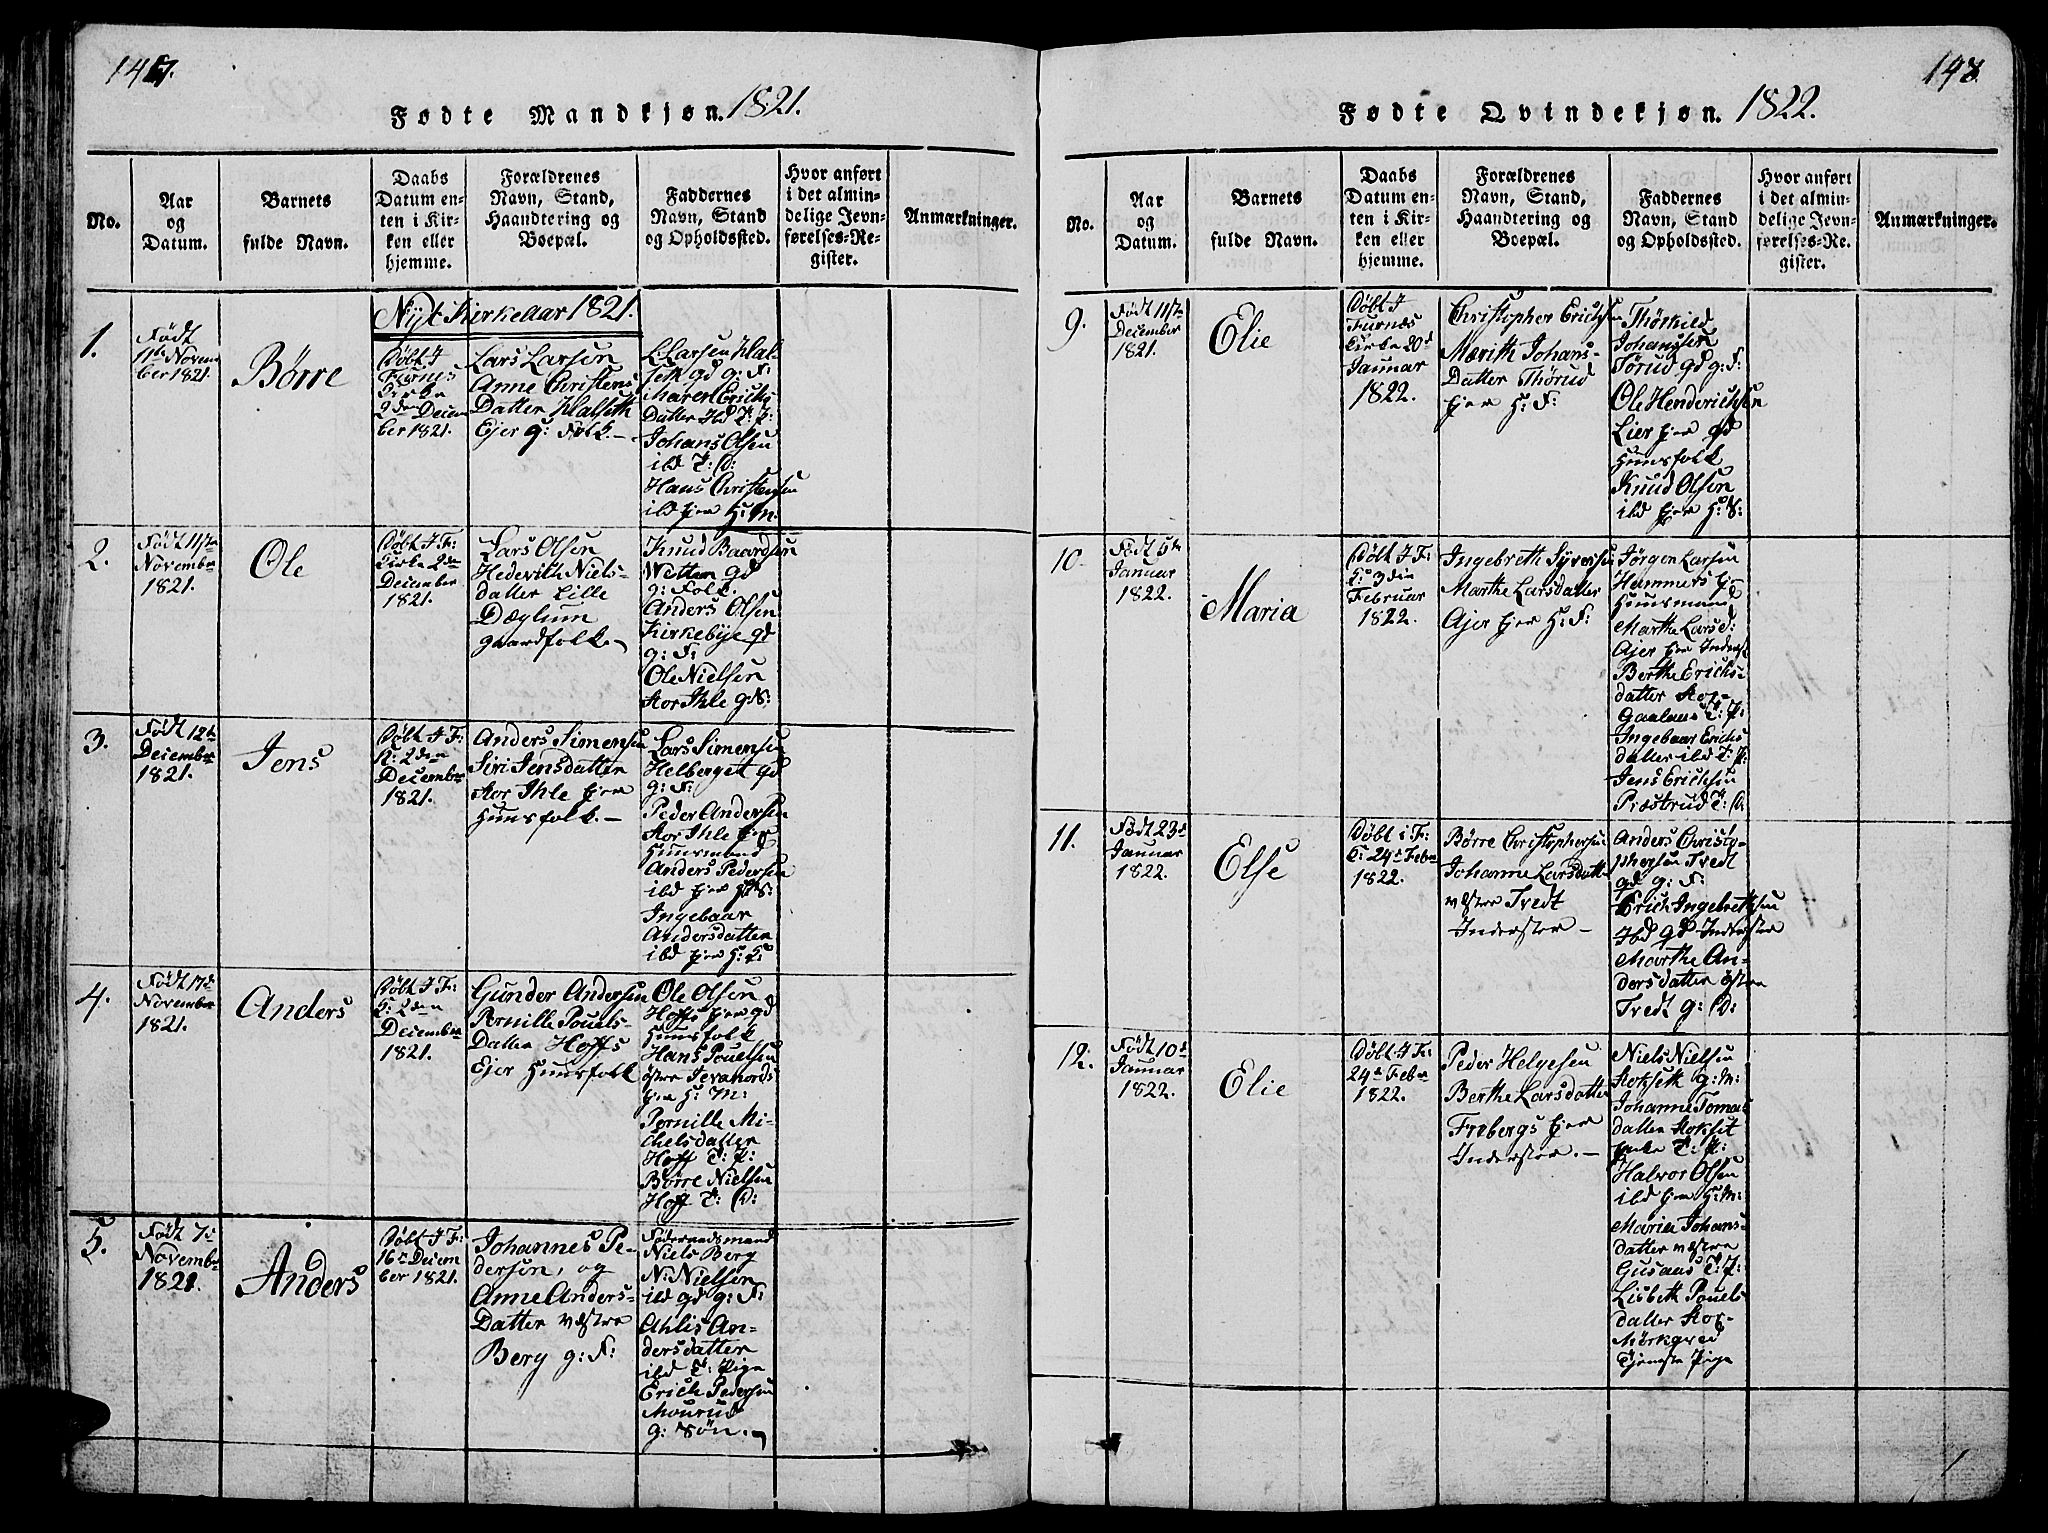 147.
Fødte Mandkjøn. 1821.
No.
Aar
og
Datum.
Barnets
fulde Navn.
Daabs
Datum en-
ten i Kir-
ken eller
hjemme.
Forældrenes
Navn, Stand,
Haandtering og
Boepæl.
Faddernes
Navn, Stand
og Opholdssted.
Hvor anført
i det almin-
delige Jevn-
førelses-Re-
gister.
Anmærkninger.
Nyt Kirkeaar 1821.
1.
Født
11te Novem
ber 1821.
Børre
Døbt I
Furnes
Kirke
2den Decem
ber 1821.
Lars Larsen
Anne Christens
Datter Halseth
Ejer g: Folk.
L: Larsen Hal-
seth gd g: F:
Maren Erichs
Datter Ibd T: P:
Johans Olsen
ibd T: D:
Hans Christensen
ibd Ejer H: M.
2.
Født 11te
Novembr
1821.
Ole
Døbt I F:
Kirke 2den
December
1821.
Lars Olsen
Hedevith Niels-
datter Lille
Dæglum
gaardfolk.
Knud Baardsen
Wetten gd
g: Folk.
Anders Olsen
Kirkebye gd
g: F:
Ole Nielsen
Stor Ihle g: S:
3.
Født 12te
December
1821.
Jens
Døbt I F:
K: 2den
December
1821.
Anders Simensen
Siri Jensdatter
Stor Ihle Ejer
Huusfolk.
Lars Simensen
Helberget gd
g: F:
Peder Andersen
Stor Ihle Ejer
Huusmand
Anders Pedersen
ibd Ejer H: S:
Ingebaar
Andersdatter
ibd Ejer H: K:
4.
Født 17de
November
1821.
Anders
Døbt I F:
K: 2den
December
1821.
Gunder Andersen
Pernille Pouels-
Datter Hoffs
Ejer Huusfolk
Ole Olsen
Hoffs Ejer gd
Huusfolk
Hans Pouelsen
østre Jevanords
Ejer H: M:
Pernille Mi-
chelsdatter
Hoff T: P:
Børre Nielsen
Hoff T: D:
5.
Født 7de
Novembr
1821.
Anders
Døbt I F:
16de Decem
ber 1821.
Johannes Pe-
dersen, og
Anne Anders-
Datter væstre
Berg g: F:
Føderaadsmand
Niels Berg
N: Nielsen
ibd gd g: F:
Ahlis An-
dersdatter
ibd T: Pige
Erich Pedersen
Mourud
g: Søn.
148
Fødte Qvindekjøn. 1822.
No.
Aar
og
Datum.
Barnets
fulde Navn.
Daabs
Datum en-
ten i Kir-
ken eller
hjemme.
Forældrenes
Navn, Stand,
Haandtering og
Boepæl.
Faddernes
Navn, Stand
og Opholdssted.
Hvor anført
i det almin-
delige Jevn-
førelses-Re-
gister.
Anmærkninger.
9.
Født 11te
December
1821.
Elie
Døbt I
Furnæs
Kirke 20de
Januar
1822.
Christopher Erichsen
Mærith Johans-
Datter Thørud
Ejer H: F:
Thørkild
Johansen
Tørud gd g: F:
Ole Henderichsen
Lier Ejer gd
Huusfolk
Knud Olsen
ibd Ejer H: S:
10.
Født 5te
Januar
1822.
Maria
Døbt I F:
K: 3die
Februar
1822.
Ingebreth Syversen
Marthe Larsdatter
Ajer Ejer H: F:
Jørgen Larsen
Hammers Ej
Huusmand
Marthe Lars D:
Ajer Ejer Inderst
Berthe Erichs-
datter Stor-
Gaalaas T: P:
Ingebaar Erichs
datter ibd T: P:
Jens Erichsen
Præstrud T: D:
11.
Født 23de
Januar
1822.
Else
Døbt i F:
K: 24de Febr
1822.
Børre Christophersen
Johanne Larsdatter
væstre Tvedt
Inderster
Anders Christo-
phersen Tvedt
gd g: F:
Erich Ingebrethsen
Ibd gd Inderster
Marthe An-
dersdatter østre
Tvedt g: D:
12.
Født 10de
Januar
1822.
Elie
Døbt I F:
24de Febr
1822.
Peder Helgesen
Berthe Larsdatter
Frebergs Ejer
Inderster.
Niels Nielsen
Stokseth g: M:
Johanne Tomas
datter Stokset
T: P:
Halvor Olsen
ibd Ejer H: M:
Maria Johans-
datter væstre
Gusaas T: P:
Lisbeth Pouels
datter Stor-
Mørkqved
Tjeneste Pige